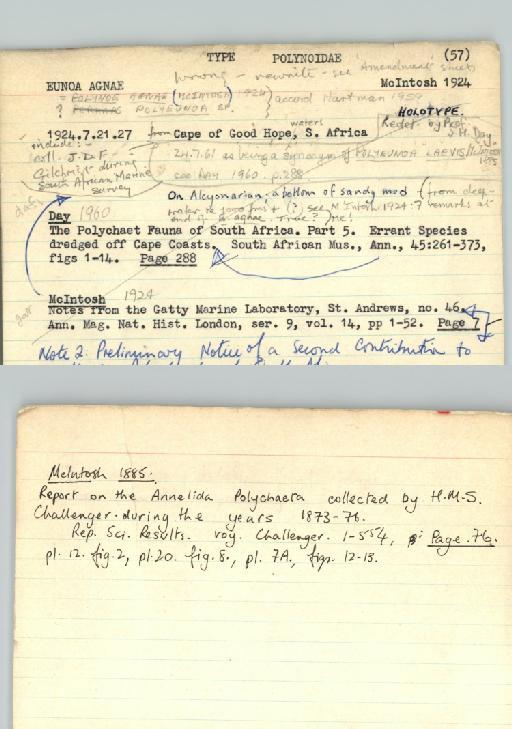 TYPE POLYNOIDAE (57)
wrong - rewrite - see 'Amendments' sheet
EUNOA AGNAE McIntosh 1924
= POLYNOE AGNAE (McINTOSH 1924) accord Hartman 1959
? POLYEUNOA SP.
HOLOTYPE.
waters
1924.7.21.27 from Cape of Good Hope, S. Africa
Redet. by Prof. J.H. Day.
include:-
coll. J.D.F. Gilchrist during South African Marine Survey
24.7.61 as being a synonym of POLYEUNOA LAEVIS McIntosh 1885
see Day 1960 p.288
On Alcyonarian, a bottom of sandy mud (from deep-
Day 1960
The Polychaet Fauna of South Africa. Part 5. Errant Species
dredged off Cape Coasts. South African Mus., Ann., 45:261-373,
figs 1-14. Page 288
McIntosh 1924
Notes from the Gatty Marine Laboratory, St. Andrews, no. 46.
Ann. Mag. Nat. Hist. London, ser. 9, vol. 14, pp 1-52. Page 7
Note 2. Preliminary Notice of a Second Contribution to
McIntosh 1885.
Report on the Annelida Polychaeta collected by H.M.S.
Challenger during the years 1873-76.
Rep. Sci. Results. voy. Challenger. 1-554, Page 76.
pl. 12. fig. 2, pl. 20. fig. 8., pl. 7A, figs. 12-13.